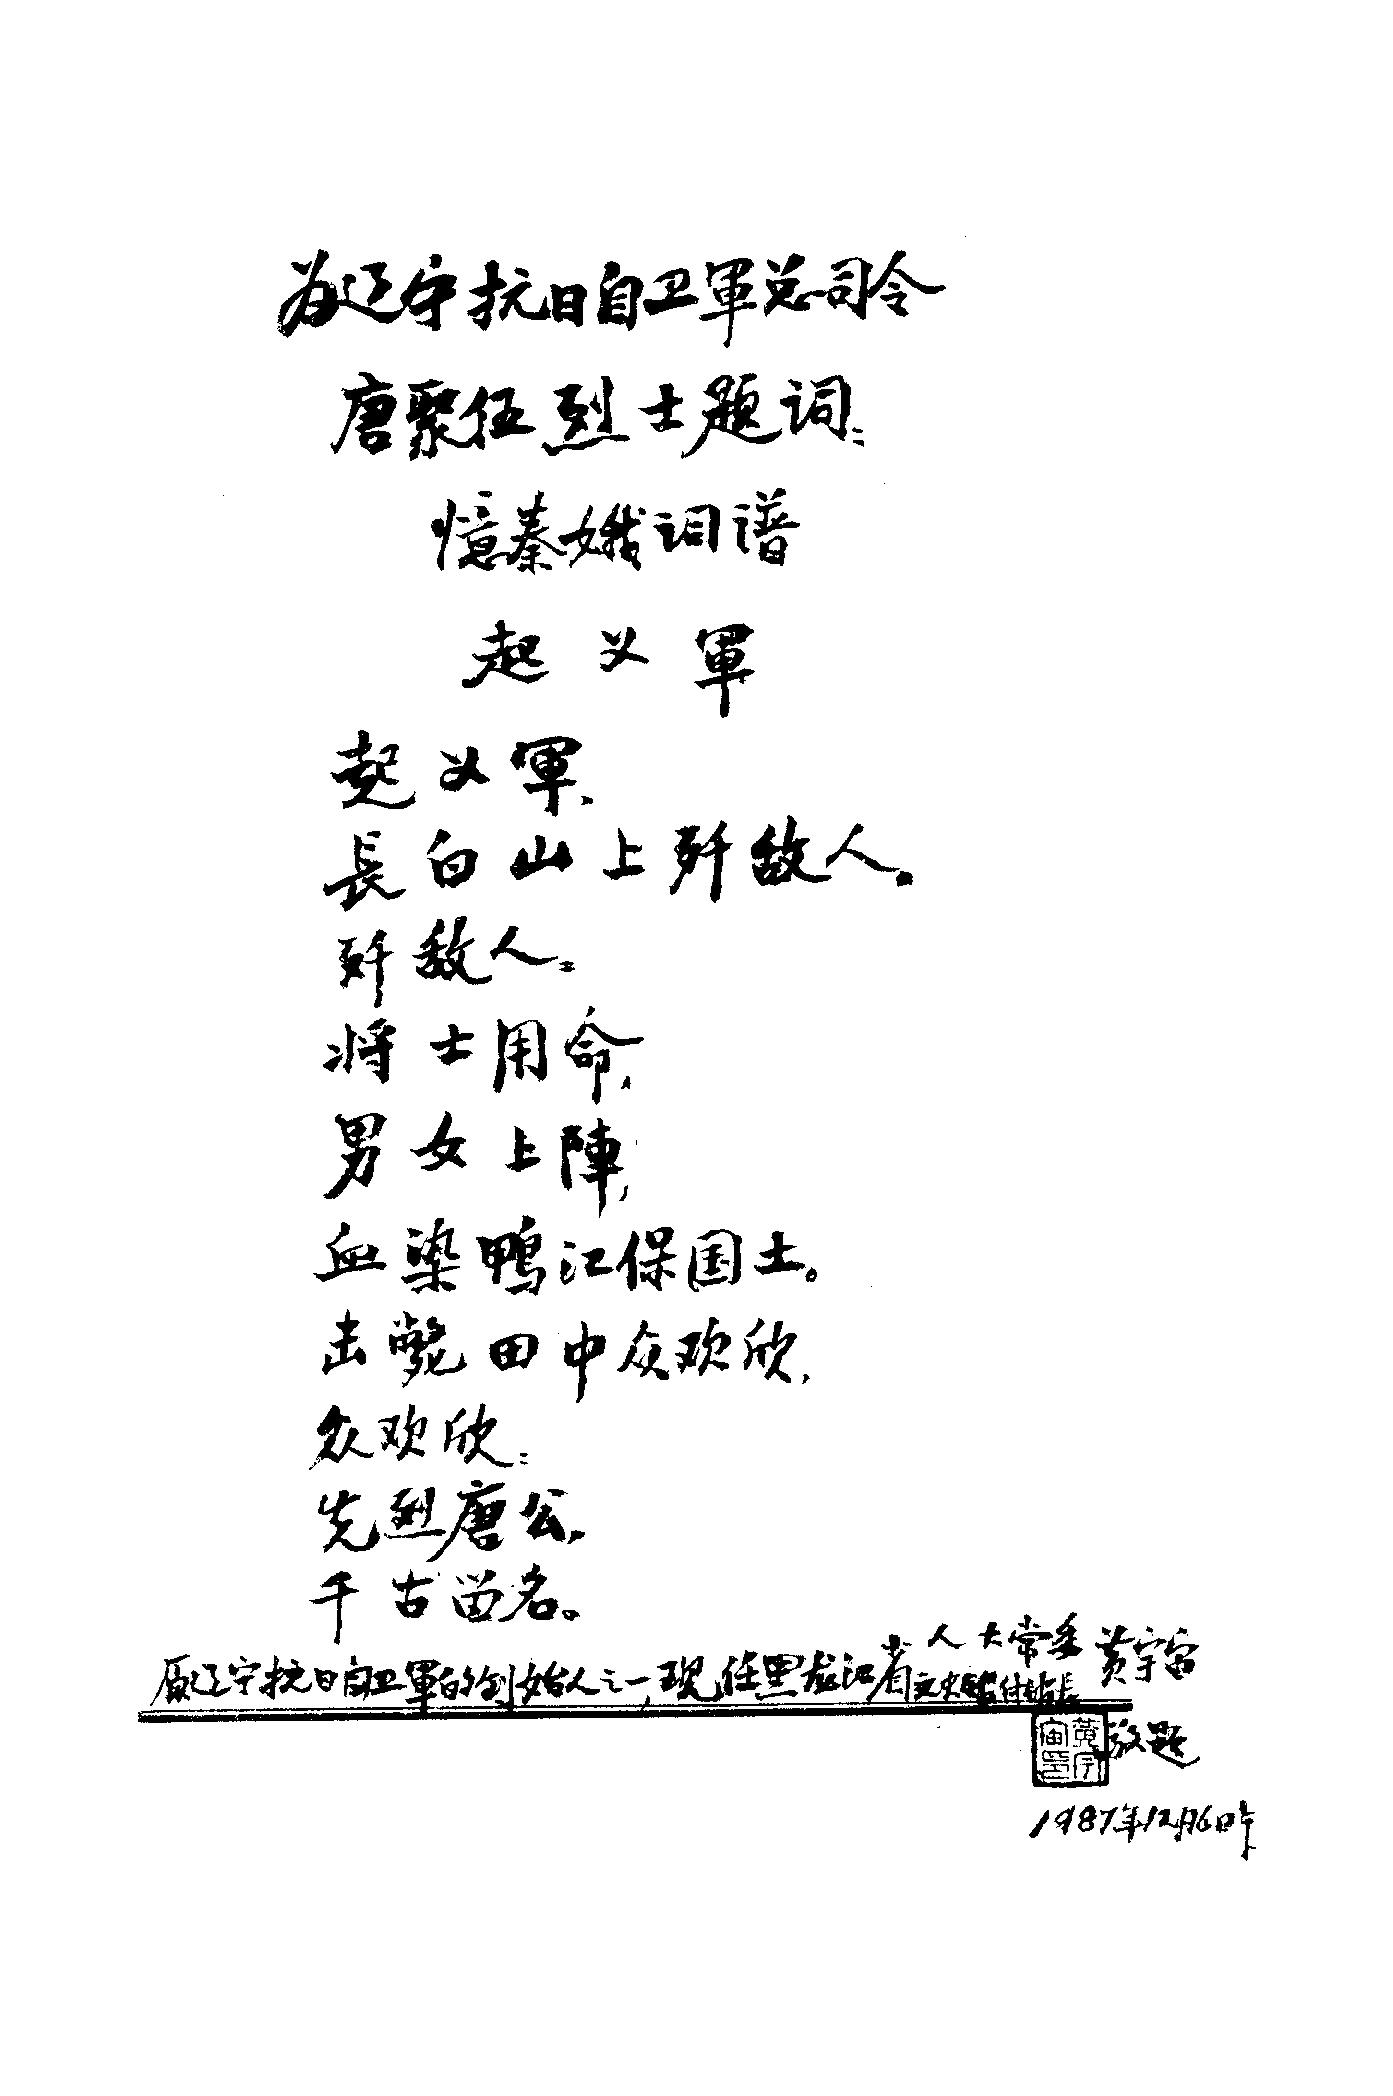 为辽宁抗日自卫軍总司令
唐聚伍烈士题词:
憶秦娥词谱
起义軍
起义軍,
長白山上歼敌人。
歼敌人:
将士用命,
男女上陣,
血染鸭江保国土。
击毙田中众欢欣,
众欢欣:
先烈唐公,
千古留名。
原辽宁抗日自卫軍的创始人之一,现任黑龙江省人大常委 黄宇宙
文史馆付馆長
敬题
黄宇宙印
1987年12月6日